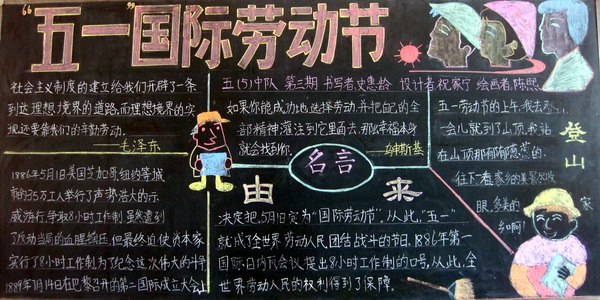 “五一”国际劳动节
社会主义制度的建立给我们开辟了一条
到达理想境界的道路,而理想境界的实
现还要靠我们的辛勤劳动。
——毛泽东
五(5)中队 第三期 书写者,史惠龄 设计者,祝家宁 绘画者,陈熙
如果你能成功地选择劳动,并把自己的全
部精神灌注到它里面去,那么幸福本身
就会找到你。——乌申斯基
名言
五一劳动节的上午,我去
一会儿就到了山顶,我站
在山顶那郁郁葱葱的
往下看,家乡的果实尽收
眼,多美的家
乡啊!
登山
1886年5月1日美国芝加哥纽约等城
市的35万工人举行了声势浩大的示
威游行,争取8小时工作制,虽然遭到
了反动当局的血腥镇压,但最终迫使资本家
实行了8小时工作制,为了纪念这次伟大的斗争
1889年7月14日在巴黎召开的第二国际成立大会上
由来
决定把,5月1日定为“国际劳动节”,从此,“五一”
就成了全世界劳动人民团结战斗的节日,1886年第一
国际日内瓦会议提出8小时工作制的口号,从此,全
世界劳动人民的权利得到了保障。